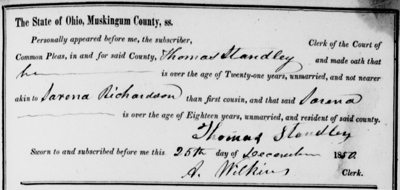 The State of Ohio, Muskingum County, ss.
Personally appeared before me, the subscriber, Clerk of the Court of
Common Pleas, in and for said County, Thomas Standley and made oath that
he is over the age of Twenty-one years, unmarried, and not nearer
akin to Sarena Richardson than first cousin, and that said Sarena
is over the age of Eighteen years, unmarried, and resident of said county.
Thomas Standley
Sworn to and subscribed before me this 25th day of December 1850.
A. Wilkins Clerk.